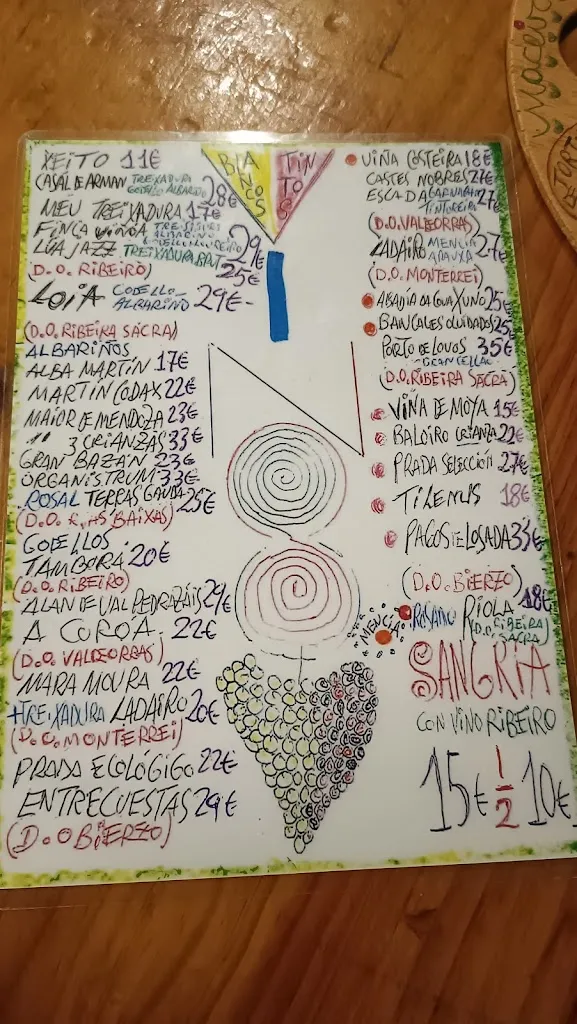 BIANCOS
TINTOS
XEITO 11€
CASAL DE ARMAN TREIXADURA GODELLO ALBARIÑO 28€
MEU TREIXADURA 17€
FINCA VIÑOA 29€
LÚA JAZZ TREIXADURA BRUT 25€
(D.O. RIBEIRO)
LOIA GODELLO ALBARIÑO 29€
(D.O. RIBEIRA SACRA)
ALBARIÑOS
ALBA MARTÍN 17€
MARTÍN CODAX 22€
MAIOR DE MENDOZA 23€
" 3 CRIANZAS 33€
GRAN BAZÁN 23€
ORGANISTRUM 33€
ROSAL TERRAS GAUDA 25€
(D.O. RÍAS BAIXAS)
GODELLOS
TAMBORÁ 20€
(D.O. RIBEIRO)
ALAN DE VAL PEDRAZÁIS 29€
A COROA 22€
(D.O. VALDEORRAS)
MARA MOURA 22€
+TREIXADURA LADAIRO 20€
(D.O. MONTERREI)
PRADA ECOLÓGIGO 22€
ENTRECUESTAS 29€
(D.O BIERZO)
VIÑA COSTEIRA 18€
CASTES NOBRES 27€
ESCADA GARNACHA TINTOREIRA 27€
(D.O. VALDEORRAS)
LADAIRO MENCIA ARAUXA 27€
(D.O. MONTERREI)
ABADÍA DA COVA XUÑO 25€
BANCALES OLVIDADOS 25€
PORTO DE LOVOS 35€
BRANCELLAO
(D.O. RIBEIRA SACRA)
VIÑA DE MOYA 15€
BALOIRO CRIANZA 22€
PRADA SELECCIÓN 27€
TILENUS 18€
PAGOS DE LOSADA 33€
(D.O. BIERZO)
MENCIA
ROSADO RIOLA 18€
(D.O. RIBEIRA SACRA)
SANGRIA
CON VINO RIBEIRO
15€ 1/2 10€
Maceva